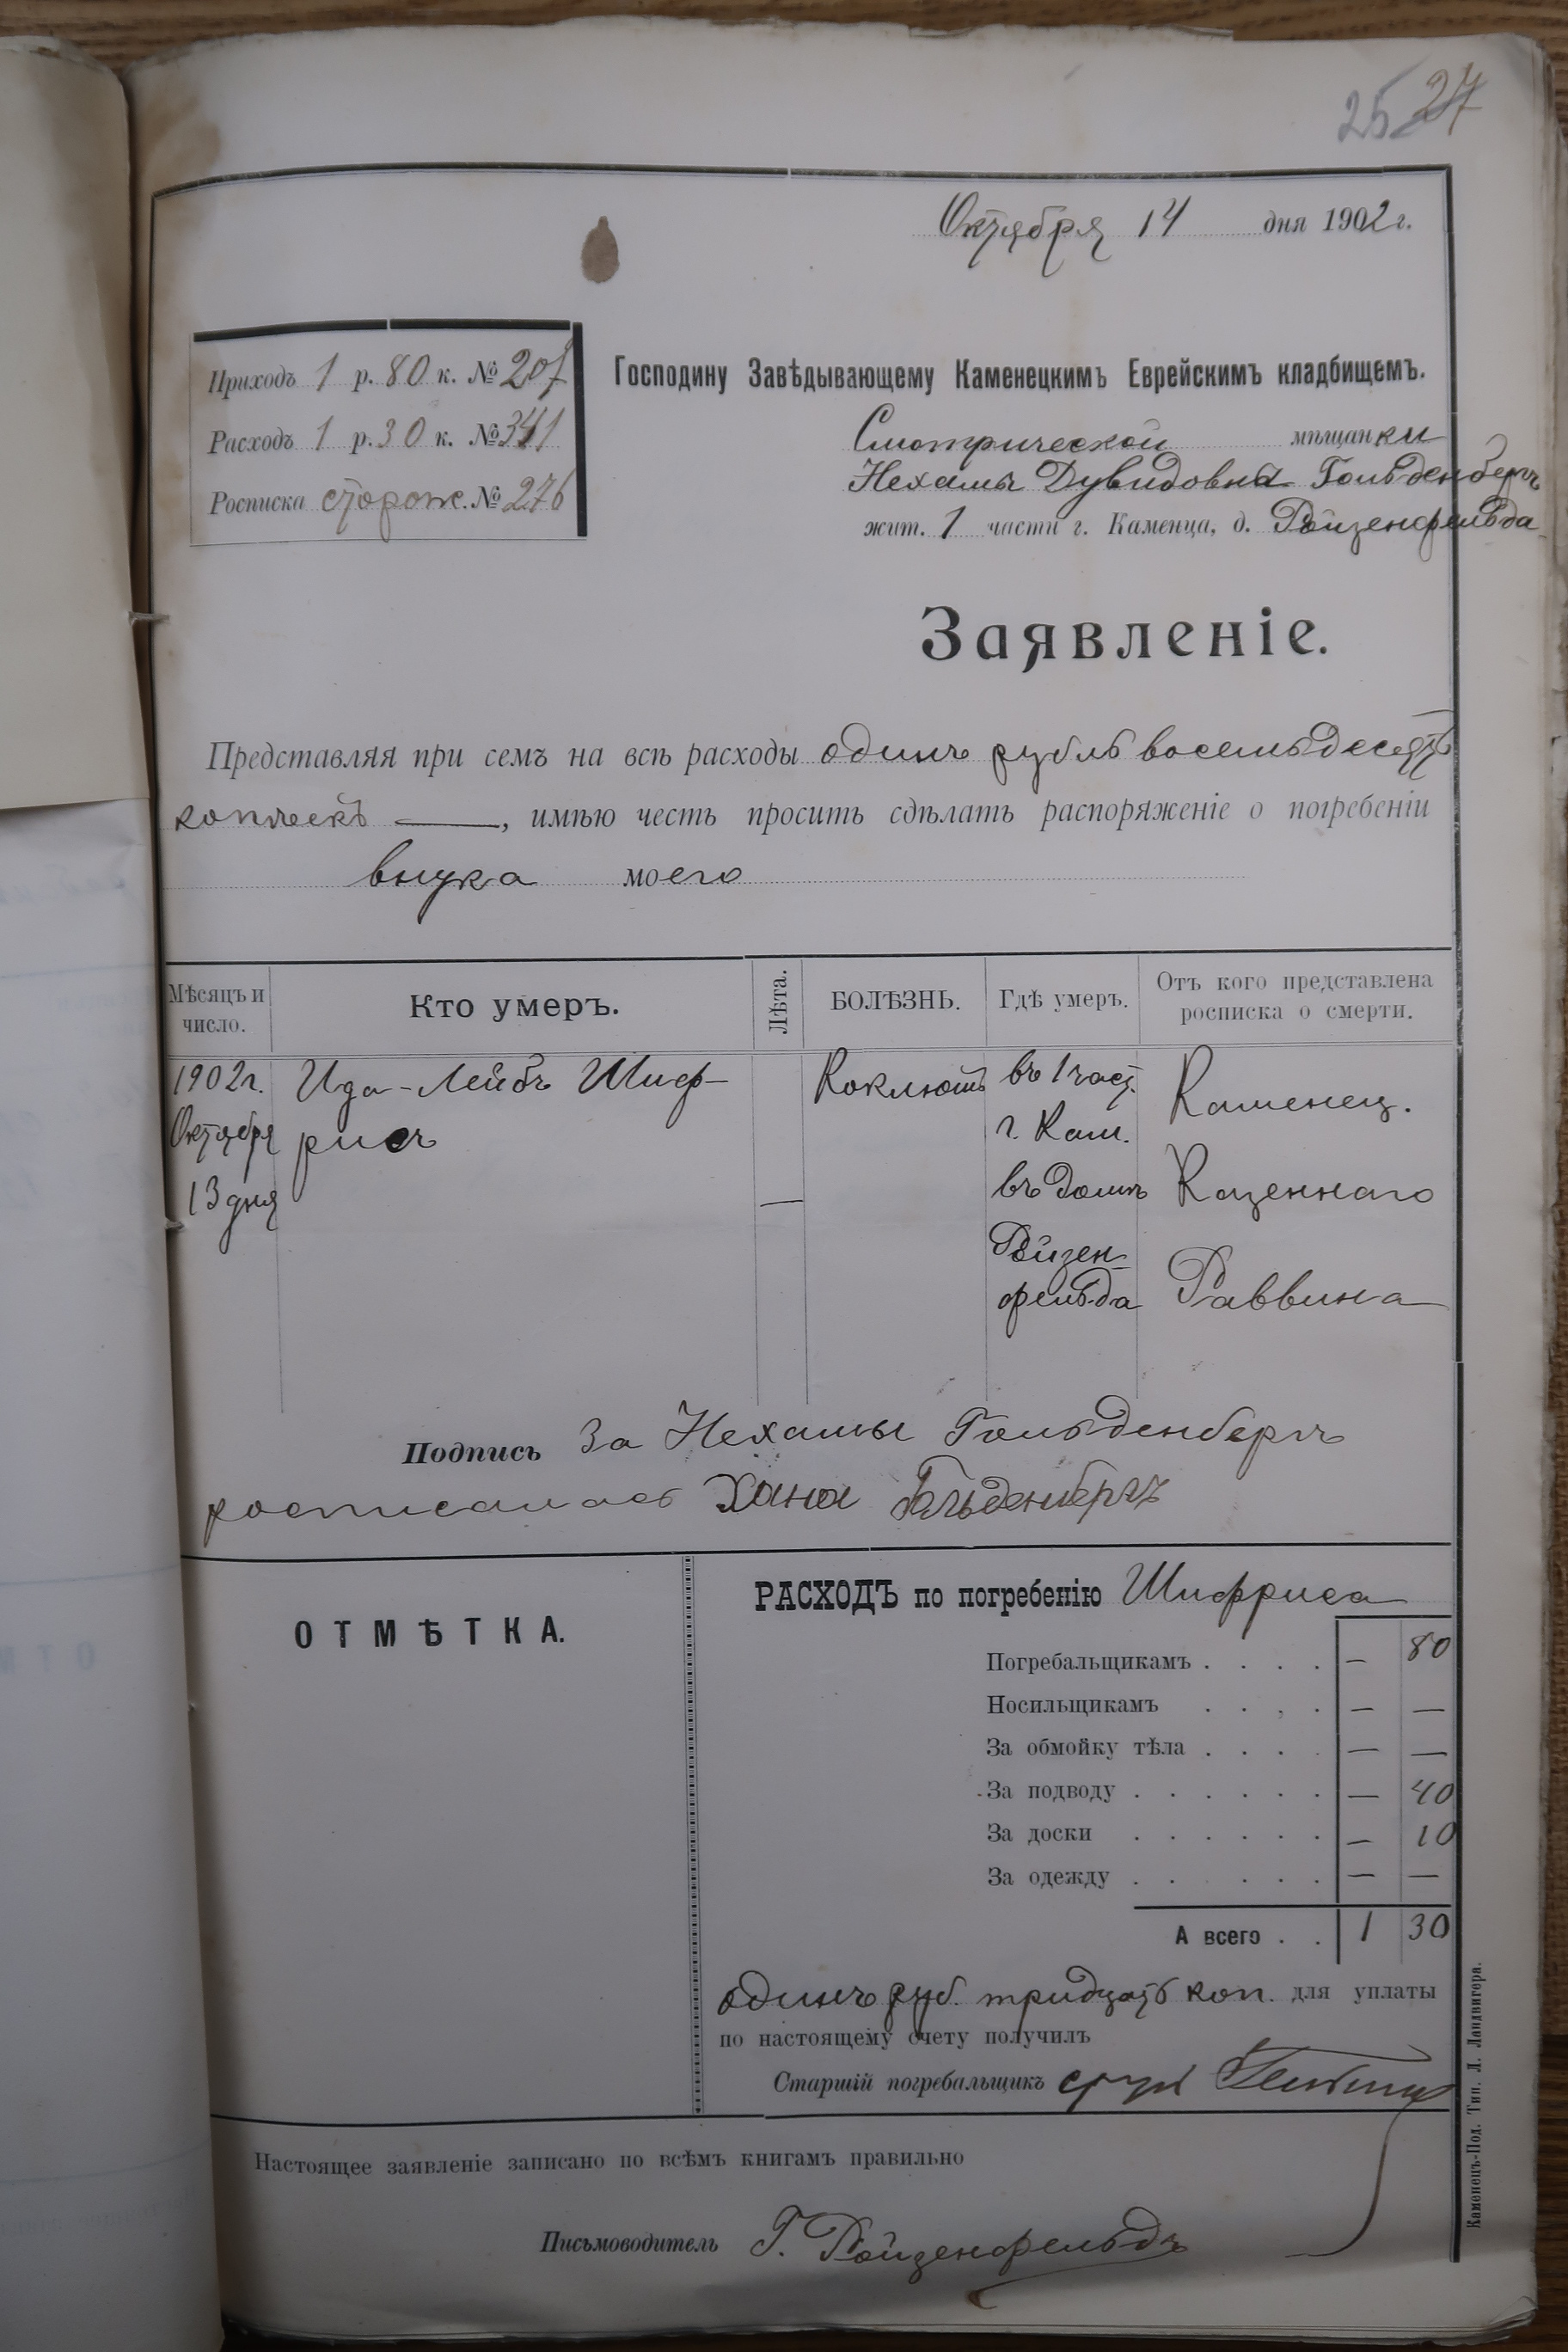 25 27
Октября 14 дня 1902 г.
Приходъ 1 р. 80 к. № 207
Расходъ 1 р. 30 к. № 341
Росписка сторож. № 276
Господину Завѣдывающему Каменецкимъ Еврейскимъ кладбищемъ.
Смотрической мѣщанки
Нехамы Дувидовна Гольденбергъ
жит. 1 части г. Каменца, д. Ройзенфельда
Заявленіе.
Представляя при семъ на всѣ расходы одинъ рубль восемьдесятъ
копѣекъ —, имѣю честь просить сдѣлать распоряженіе о погребеніи
внука моего
Мѣсяцъ и число. Кто умеръ. Лѣта. БОЛѢЗНЬ. Гдѣ умеръ. Отъ кого представлена росписка о смерти.
1902 г. Ида-Лейбъ Шиф- Коклюшъ въ 1 част. Каменец.
Октября рисъ г. Кам.
13 дня — въ домѣ Казеннаго
Ройзен-
фельда Раввина
Подпись За Нехамы Гольденбергъ
росписалась Хана Гольденбергъ
ОТМѢТКА.
РАСХОДЪ по погребенію Шифриса
Погребальщикамъ . . . . — 80
Носильщикамъ . . . . — —
За обмойку тѣла . . . . — —
За подводу . . . . . . — 40
За доски . . . . . . — 10
За одежду . . . . . . — —
А всего . . 1 30
одинъ руб. тридцать коп. для уплаты
по настоящему счету получилъ
Старшій погребальщикъ
Настоящее заявленіе записано по всѣмъ книгамъ правильно
Письмоводитель Г. Ройзенфельдъ
Каменецъ-Под. Тип. Л. Ландвигера.